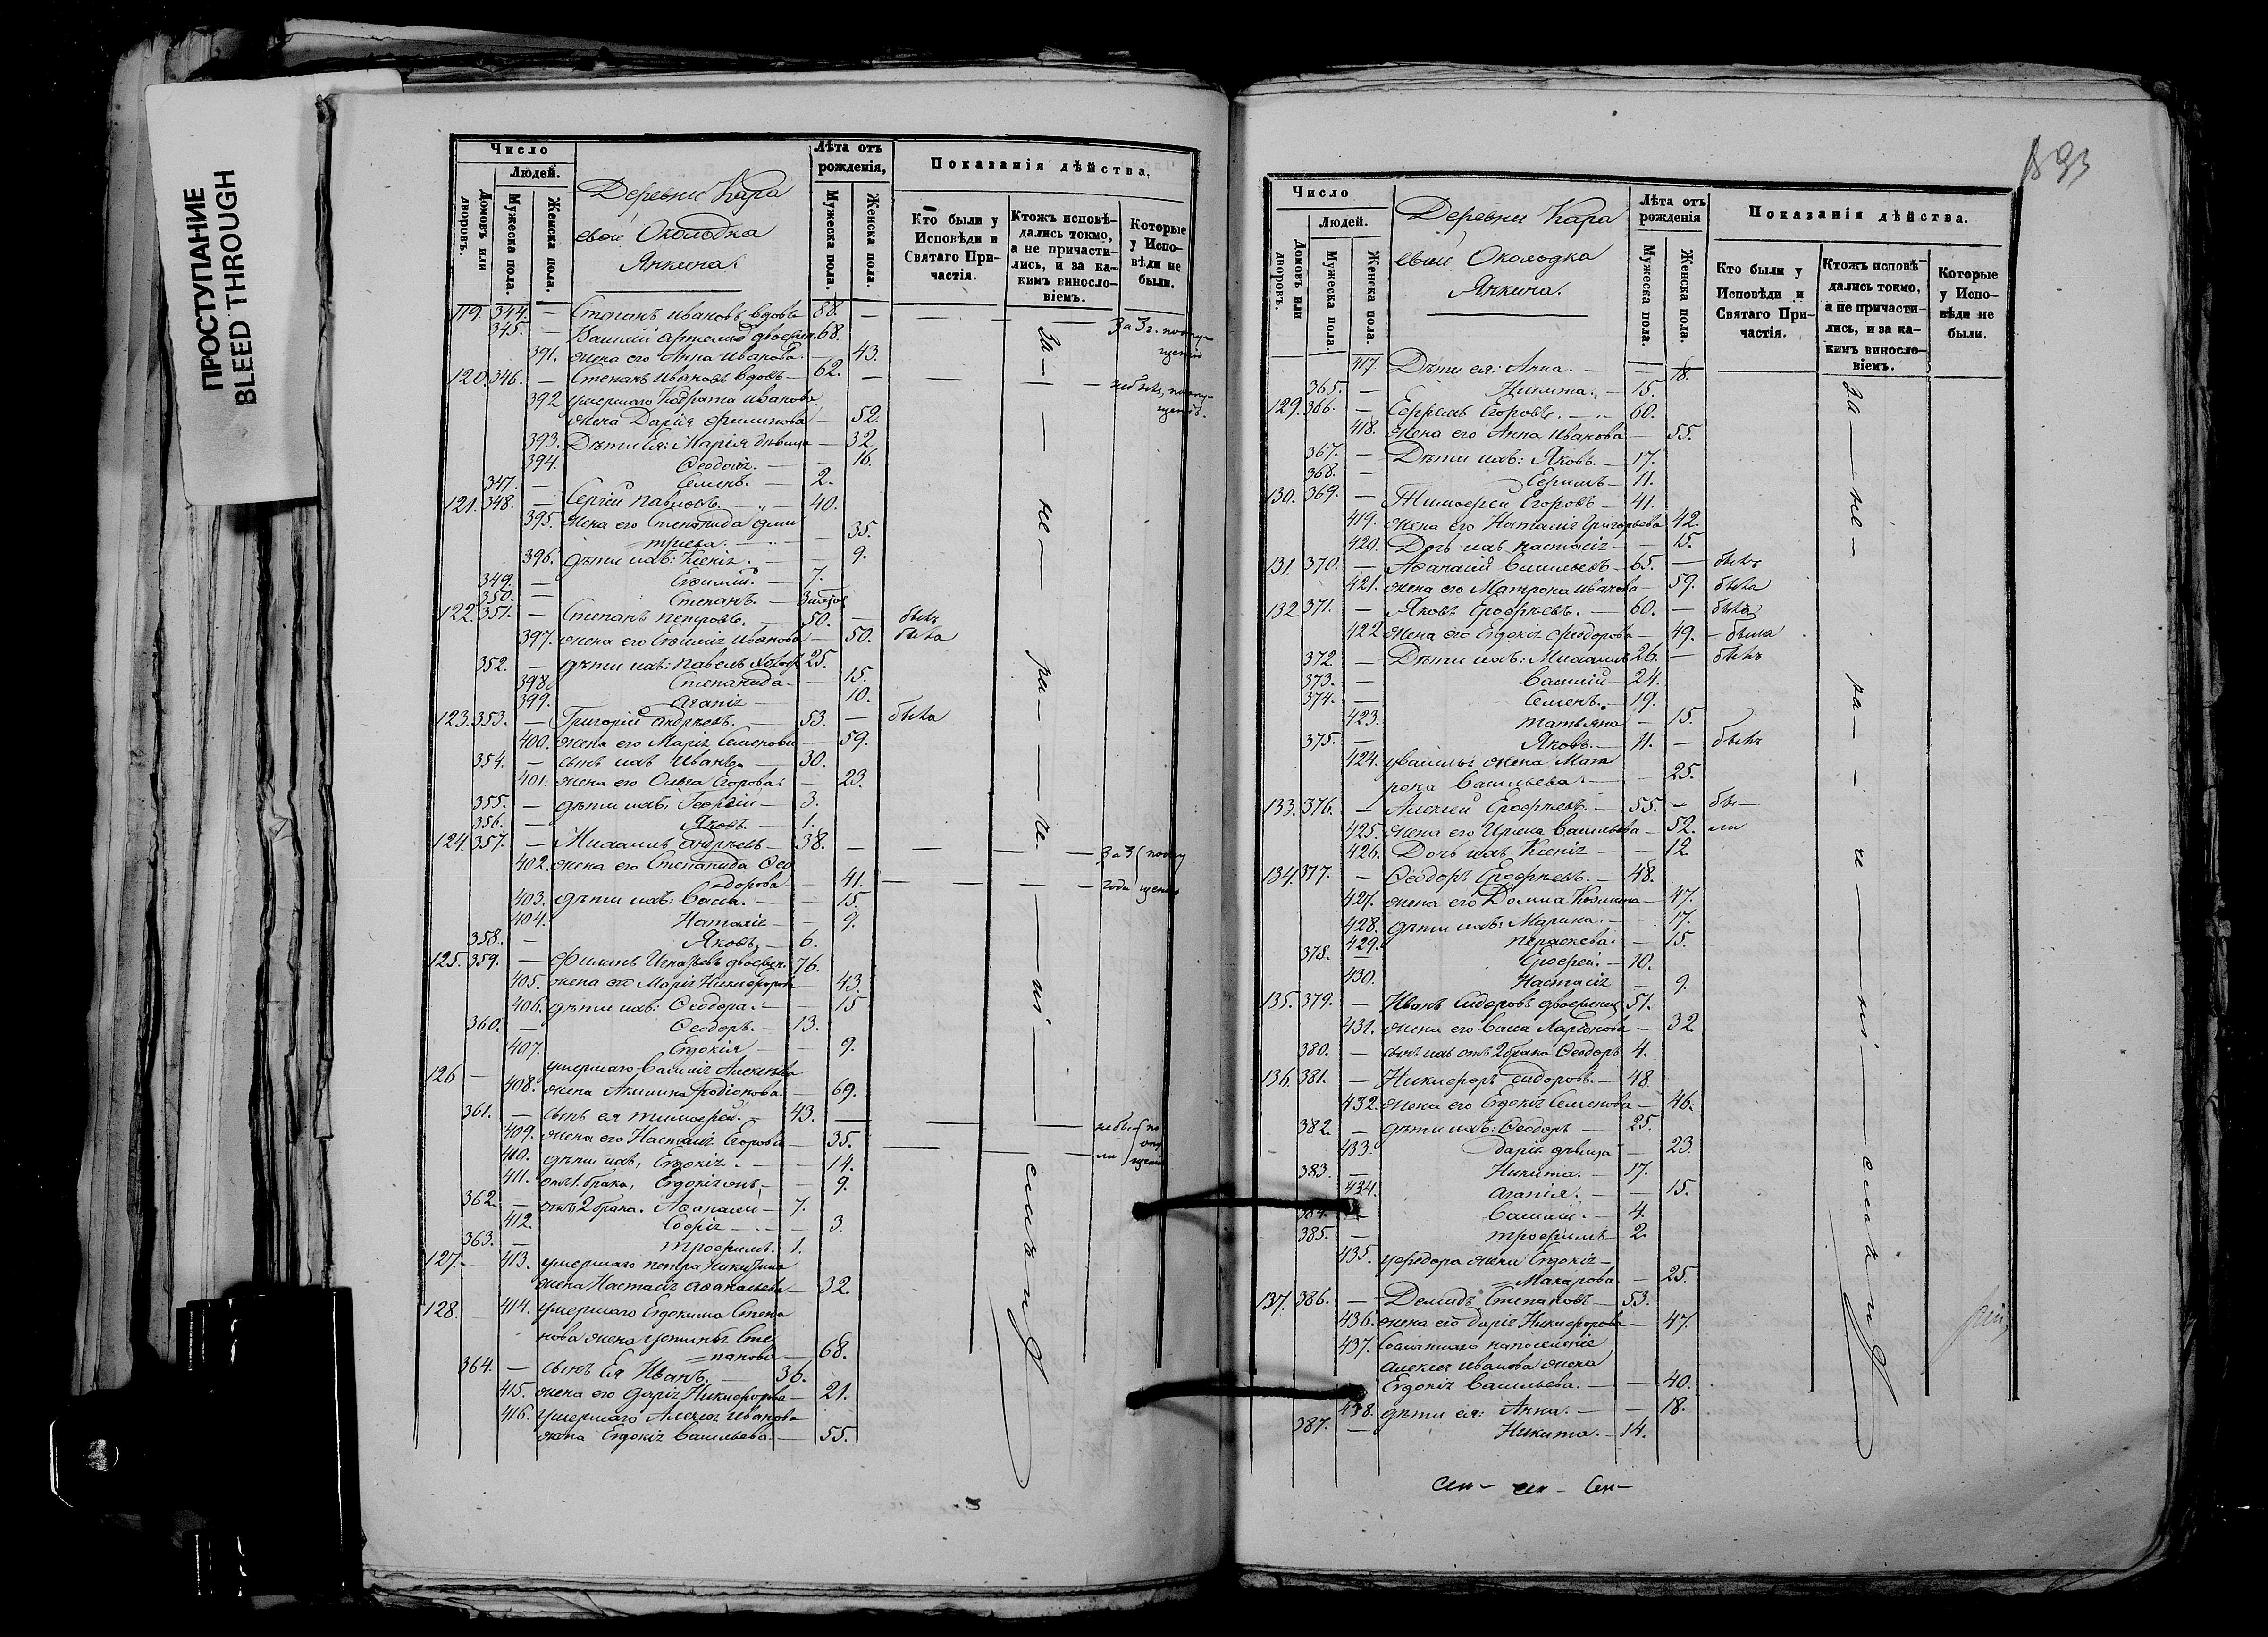 ПРОСТУПАНИЕ
BLEED THROUGH
Число
Людей.
Домовъ или дворовъ.
Мужеска пола.
Женска пола.
Деревни Кара
евой Околодка
Янкина.
Лѣта отъ рожденія,
Мужеска пола.
Женска пола.
Показанія дѣйства.
Кто были у Исповѣди и Святаго Причастія.
Ктожъ исповѣдались токмо, а не причастились, и за какимъ винословіемъ.
Которые у Исповѣди не были.
119. 344. — Степанъ Ивановъ вдовъ 88. —
345. — Василій Артемьевъ 68.
391. жена его Анна Иванова — 43.
120. 346. — Степанъ Ивановъ вдовъ — 62. —
392 умершаго Кодрата Иванова
жена Дарія Филипова — 52.
393. Дѣти ея: Марія дѣвица — 32
394. Ѳеодосія. — 16.
347. — Семенъ. — 2.
121. 348. — Сергій Павловъ. — 40.
395. жена его Степанида Дми
=тріева. — 35.
396. дѣти ихъ: Ксенія. — 9.
349. — Евѳимій. — 7.
350. — Степанъ. —
122. 351. — Степанъ Петровъ. — 50. — былъ
397. жена его Евѳимія Иванова — 50. была
352. — дѣти ихъ: Павелъ 25.
398. Степанида — 15.
399. Агапія — 10.
123. 353. — Григорій Андреевъ. — 53. —
400. жена его Марія Семенова — 59.
354. — сынъ ихъ Иванъ — 30.
401. жена его Ольга Егорова — 23.
355. — дѣти ихъ: Георгій — 3.
356. — Яковъ. — 1.
124. 357. — Михаилъ Андреевъ — 38. —
402. жена его Степанида Ѳео
=дорова — 41.
403. дѣти ихъ: Васса. — 15.
404. Наталія — 9.
358. — Яковъ. — 6.
125. 359. — Филипъ Игнатьевъ 76.
405. жена его Марія Никифорова — 43.
406. дѣти ихъ: Ѳеодора. — 15
360. — Ѳеодоръ. — 13.
407. Евдокія — 9.
126 — умершаго Василія Алексѣева
408. жена Акилина Родіонова — 69.
361. — сынъ ея Тимофей. — 43. —
409. жена его Настасія Егорова — 35.
410. дѣти ихъ, Евдокія. — 14.
411. отъ 1. брака, Евдокія — 9.
362. — отъ 2 брака. Аѳанасій — 7.
412. Софія — 3.
363. — Трофимъ. 1.
127. — 413. умершаго Петра Никитина
жена Настасія Аѳанасьева — 32.
128. 414. умершаго Евдокима Степа
нова жена Устинья Сте
=панова — 68.
364. — сынъ Ея Иванъ. — 36.
415. жена его Дарія Никифорова — 21.
416. Умершаго Алексія Иванова
жена Евдокія Васильева. — 55.
за — не — ра — че — ні — емъ
Число
Людей.
Домовъ или дворовъ.
Мужеска пола.
Женска пола.
Деревни Кара
евой Околодка
Янкина.
Лѣта отъ рожденія
Мужеска пола.
Женска пола.
Показанія дѣйства.
Кто были у Исповѣди и Святаго Причастія.
Ктожъ исповѣдались токмо, а не причастились, и за какимъ винословіемъ.
Которые у Исповѣди не были.
417. Дѣти ея: Анна. — 18.
365. — Никита. — 15.
129. 366. — Ефремъ Егоровъ. — 60.
418. жена его Анна Иванова — 55.
367. — Дѣти ихъ: Яковъ. — 17.
368. — — 11.
130. 369. — Тимофей Егоровъ — 41.
419. жена его Наталія Григорьева 42.
420. Дочь ихъ Настасія — 15.
131. 370. — Аѳанасій Васильевъ — 65. — былъ
421. жена его Матрона Иванова — 59. была
132. 371. — Яковъ Ерофѣевъ. — 60. —
422 жена его Евдокія Феодорова — 49. — была
372. — Дѣти ихъ: Михаилъ 26. — былъ
373. — Василій — 24.
374. — Семенъ. — 19.
423. Татьяна — 15.
375. — Яковъ. — 11. — былъ
424. жена Мат
рона Васильева — 25.
133. 376. — Алексѣй Ерофѣевъ. — 55. — бы —
425. жена его Ирина Васильева — 52. ли
426. Дочь ихъ Ксенія — 12.
134. 377. — Ѳеодоръ Ерофѣевъ. — 48.
427. жена его Домна Козьмина — 47.
428. дѣти ихъ: Марина. — 17.
429. Параскева. — 15.
378. — Ерофей. — 10.
430. Настасія — 9.
135. 379. — Иванъ Сидоровъ 51.
431. жена его Васса Ларіонова — 32.
380. — сынъ ихъ отъ 2 брака Ѳеодоръ 4.
136. 381. — Никифоръ Сидоровъ. — 48.
432. жена его Евдокія Семенова — 46.
382. — дѣти ихъ: Ѳеодоръ — 25.
433. Дарія дѣвица — 23.
383. — Никита. — 17.
434. Агапія. — 15.
384. — Василій. — 4
385. — Трофимъ — 2.
435. у Федора жена Евдокія —
=Макарова. — 25.
137. 386. — Демидъ Степановъ — 53.
436. жена его Дарія Никифорова — 47.
437.
Алексія Иванова жена
Евдокія Васильева. — 40.
438. дѣти ея: Анна. — 18.
387. — Никита. — 14.
за — не — ра — че — ні — емъ